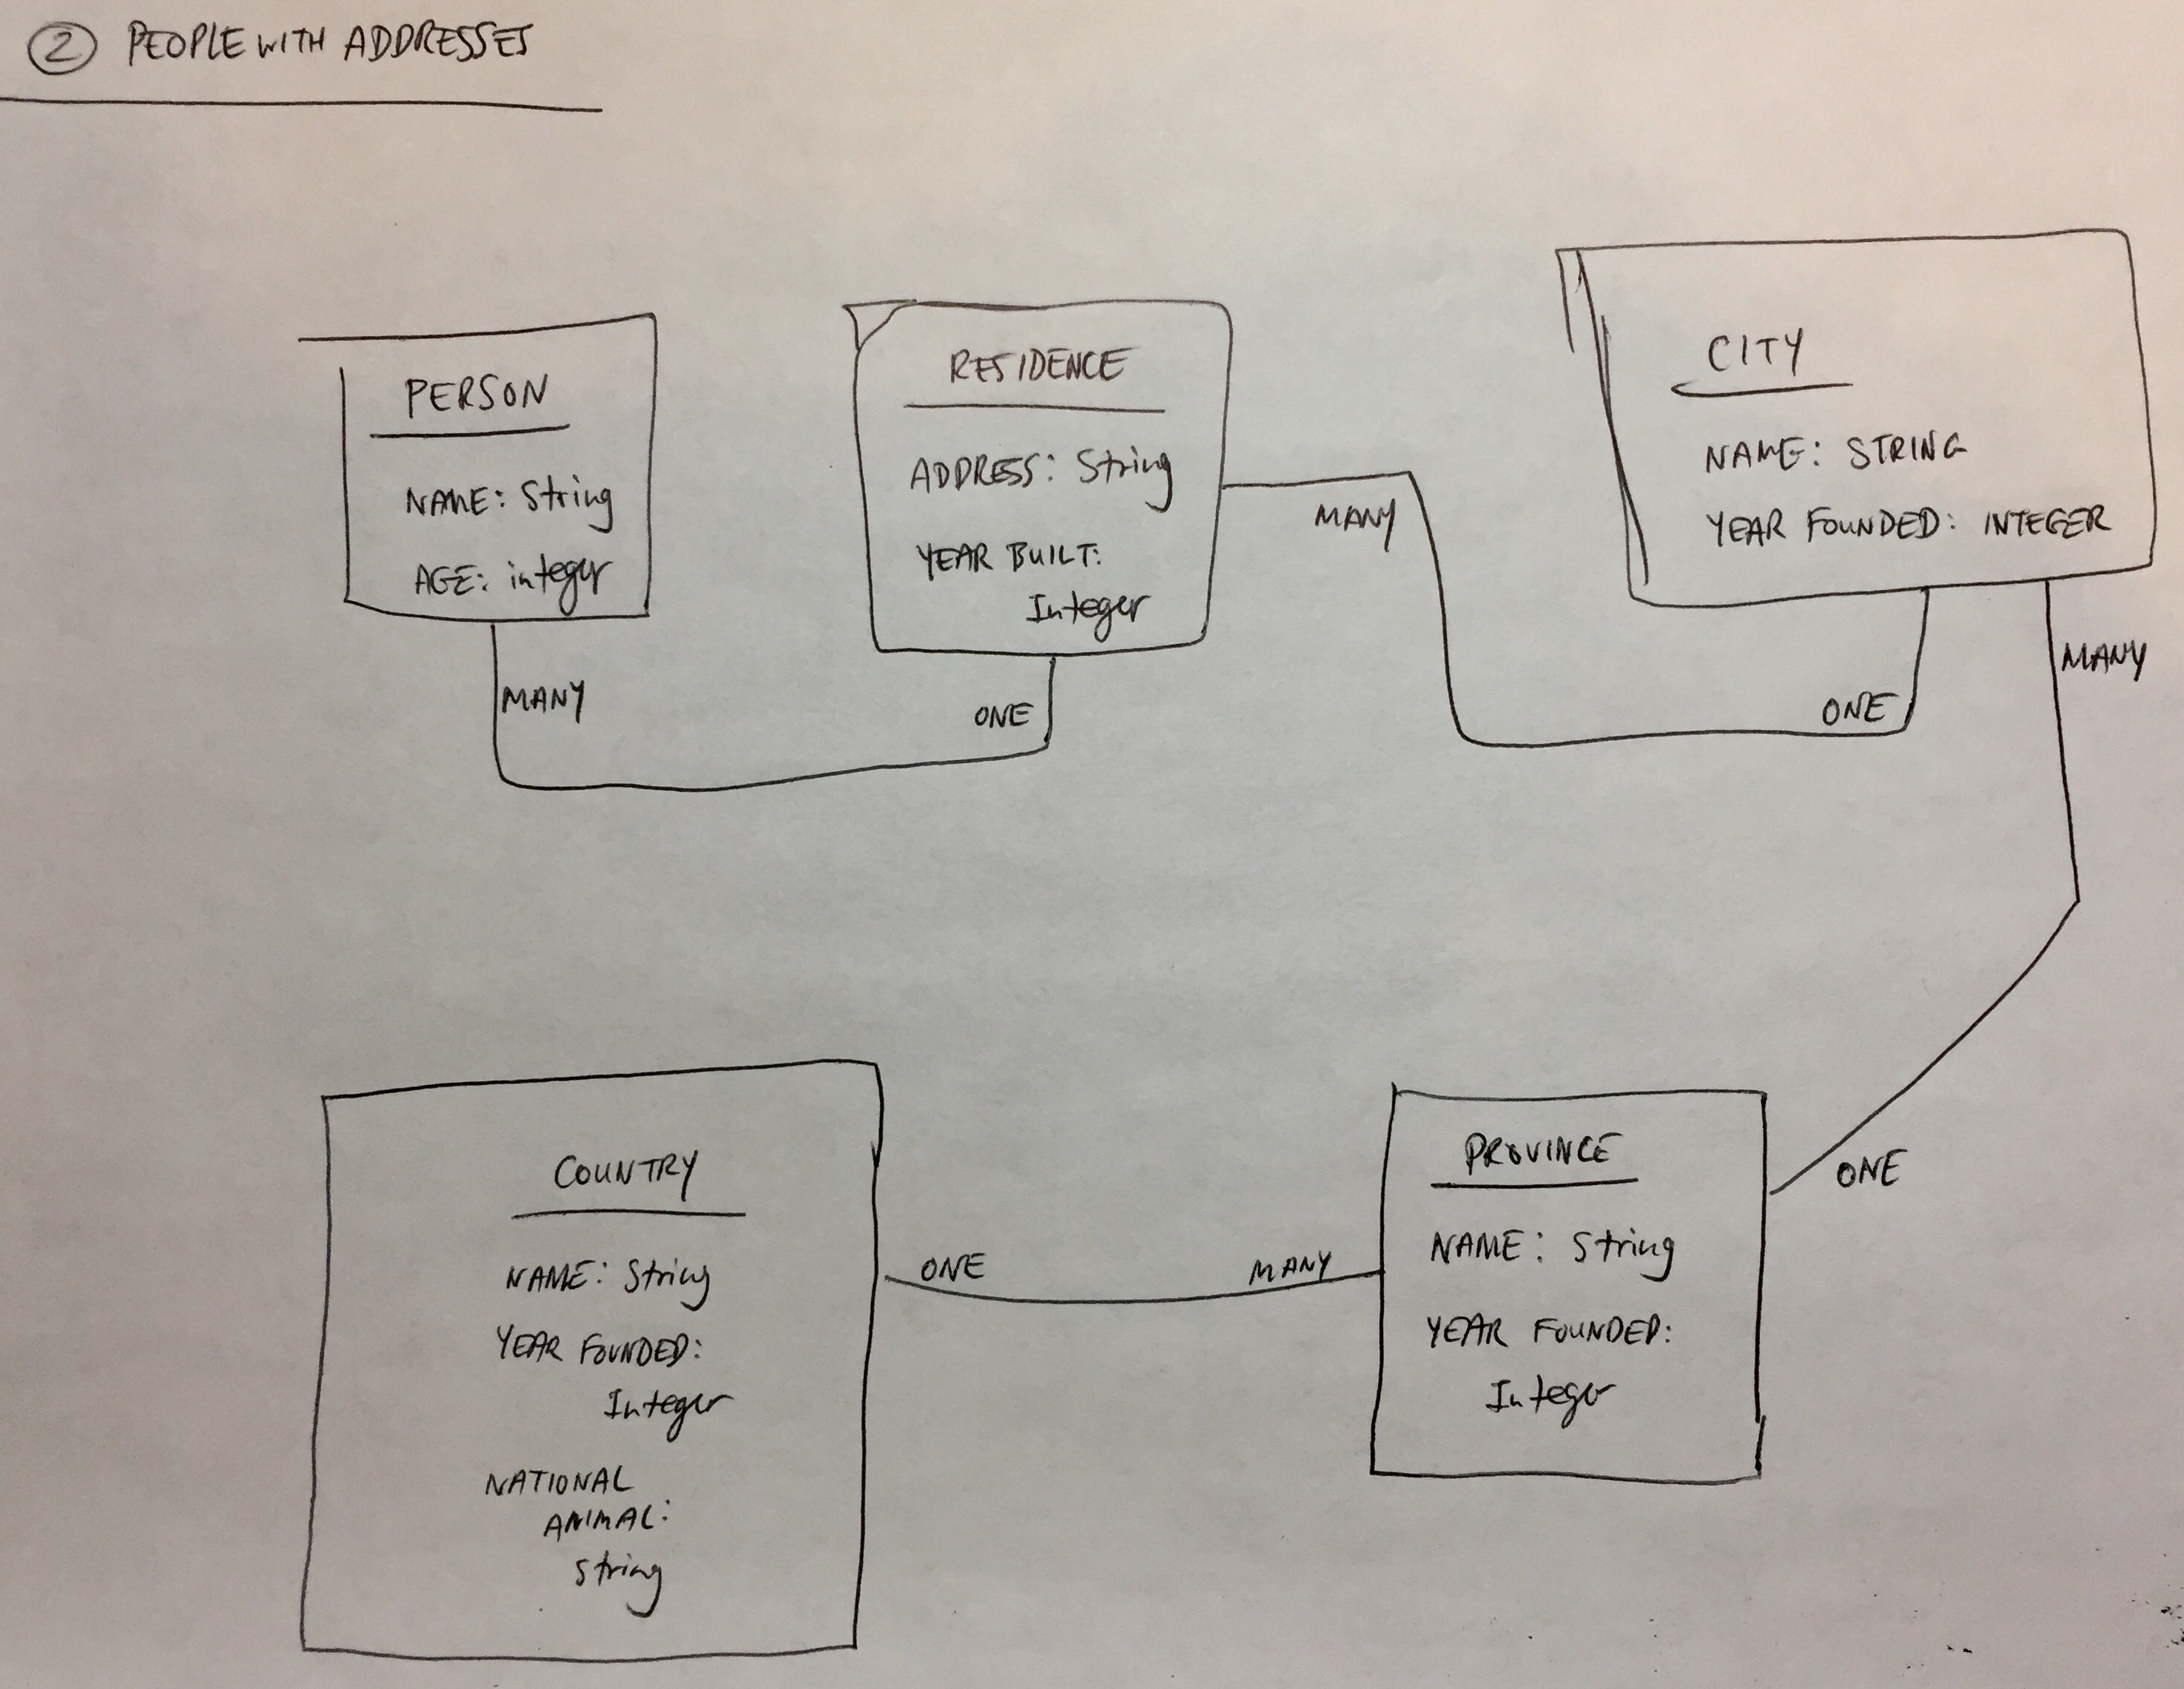 ② PEOPLE WITH ADDRESSES
PERSON
NAME: String
AGE: integer
MANY
RESIDENCE
ADDRESS: String
YEAR BUILT:
Integer
ONE
MANY
CITY
NAME: STRING
YEAR FOUNDED: INTEGER
ONE
MANY
COUNTRY
NAME: String
YEAR FOUNDED:
Integer
NATIONAL
ANIMAL:
String
ONE
MANY
PROVINCE
NAME: String
YEAR FOUNDED:
Integer
ONE